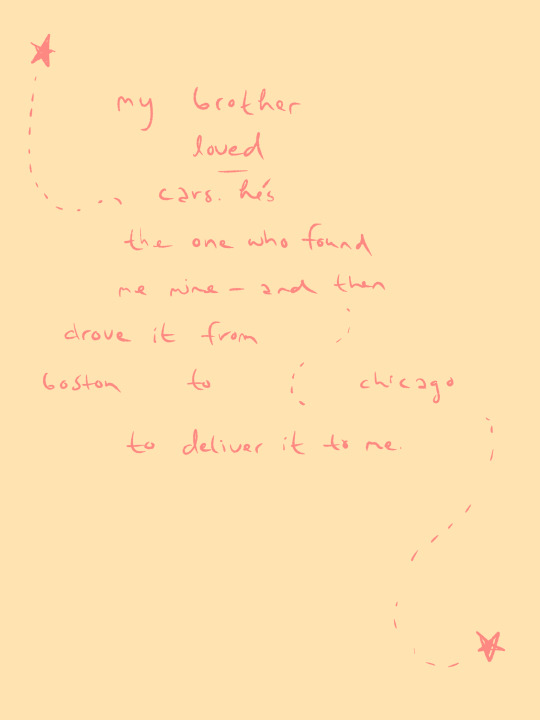 my brother
loved
cars. he's
the one who found
me mine – and then
drove it from
boston to chicago
to deliver it to me.